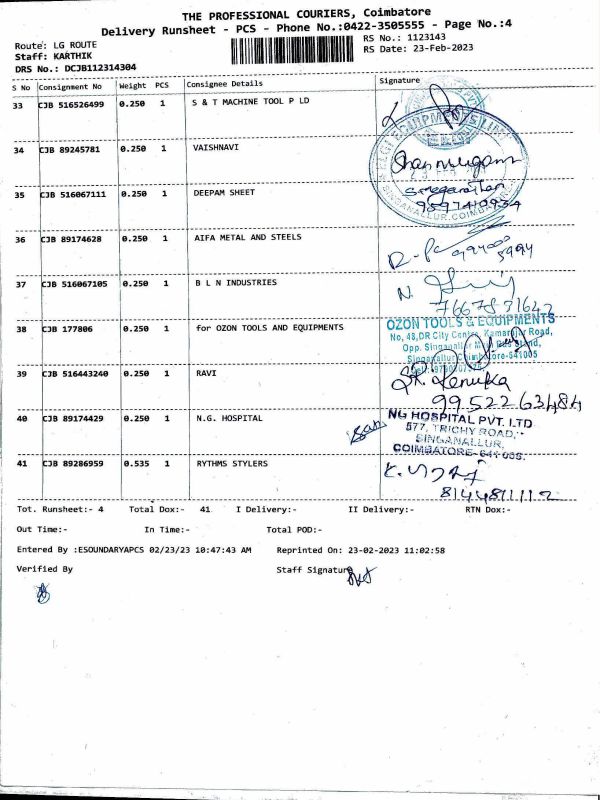 THE PROFESSIONAL COURIERS, Coimbatore
Delivery Runsheet - PCS - Phone No.:0422-3505555 - Page No.:4
Route: LG ROUTE
RS No.: 1123143
Staff: KARTHIK
RS Date: 23-Feb-2023
DRS No.: DCJB112314304
S No Consignment No Weight PCS Consignee Details Signature
33 CJB 516526499 0.250 1 S & T MACHINE TOOL P LD
34 CJB 89245781 0.250 1 VAISHNAVI
Shanmugam
35 CJB 516067111 0.250 1 DEEPAM SHEET
SINGANALLUR, COIMBATORE
36 CJB 89174628 0.250 1 AIFA METAL AND STEELS
37 CJB 516067105 0.250 1 B L N INDUSTRIES
N
7667831642
38 CJB 177806 0.250 1 for OZON TOOLS AND EQUIPMENTS
OZON TOOLS & EQUIPMENTS
No, 48, DR City Centre, Kamarajar Road,
Opp. Singanallur Main Bus Stand,
Singanallur Coimbatore-641005
39 CJB 516443240 0.250 1 RAVI
Renuka
9952263484
40 CJB 89174429 0.250 1 N.G. HOSPITAL
NG HOSPITAL PVT. LTD
577, TRICHY ROAD,
SINGANALLUR,
COIMBATORE- 641 005.
41 CJB 89286959 0.535 1 RYTHMS STYLERS
8144811112
Tot. Runsheet:- 4 Total Dox:- 41 I Delivery:- II Delivery:- RTN Dox:-
Out Time:- In Time:- Total POD:-
Entered By :ESOUNDARYAPCS 02/23/23 10:47:43 AM Reprinted On: 23-02-2023 11:02:58
Verified By Staff Signature